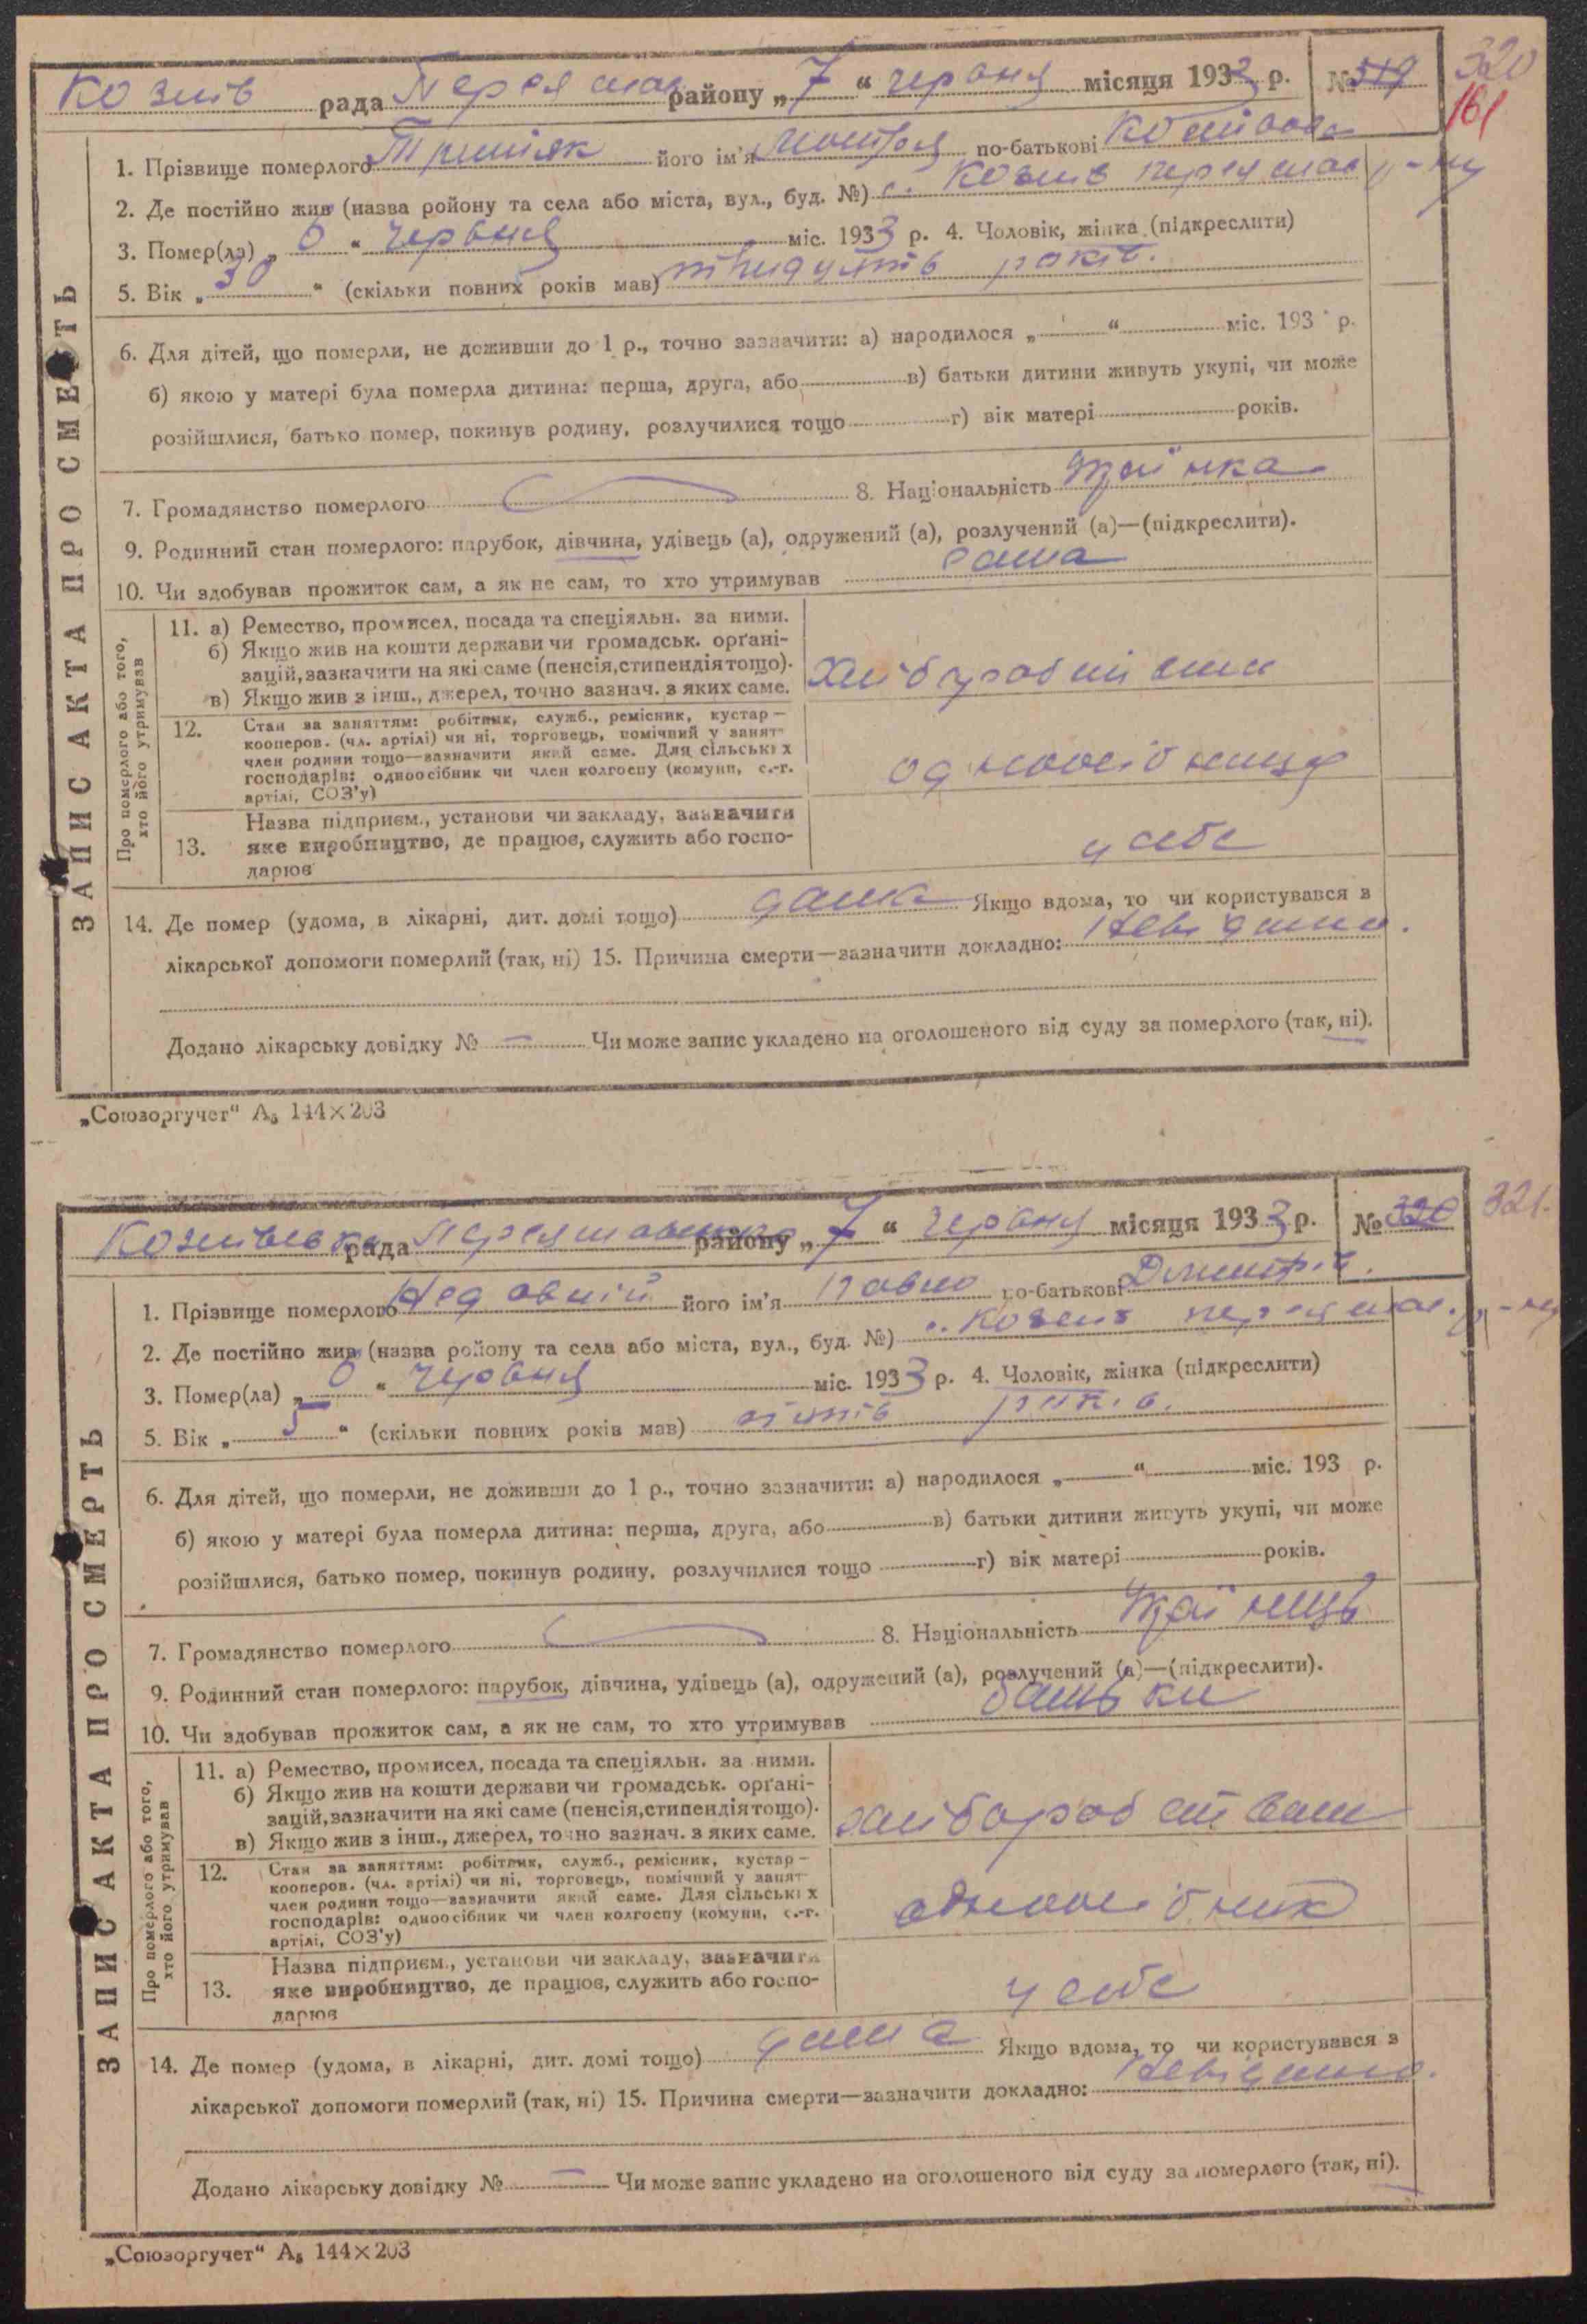 Козлів рада Переяслав району „7" червня місяця 1933 р. № 319 320
161
1. Прізвище померлого його ім'я Мотря по-батькові
2. Де постійно жив (назва ройону та села або міста, вул., буд. №) с. Козлів Переяслав р-ну
3. Помер(ла) „6" червня міс. 1933 р. 4. Чоловік, жінка (підкреслити)
5. Вік „30" (скільки повних років мав) трицять років.
6. Для дітей, що померли, не доживши до 1 р., точно зазначити: а) народилося „ " міс. 193 р.
б) якою у матері була померла дитина: перша, друга, або в) батьки дитини живуть укупі, чи може
розійшлися, батько помер, покинув родину, розлучилися тощо г) вік матері років.
7. Громадянство померлого 8. Національність Українка
9. Родинний стан померлого: парубок, дівчина, удівець (а), одружений (а), розлучений (а)—(підкреслити).
10. Чи здобував прожиток сам, а як не сам, то хто утримував сама
ЗАПИС АКТА ПРО СМЕРТЬ
Про померлого або того, хто його утримував
11. а) Ремество, промисел, посада та спеціяльн. за ними.
б) Якщо жив на кошти держави чи громадськ. орґані-
зацій, зазначити на які саме (пенсія, стипендія тощо).
в) Якщо жив з інш., джерел, точно зазнач. з яких саме.
12. Стан за заняттям: робітник, служб., ремісник, кустар —
кооперов. (чл. артілі) чи ні, торговець, помічний у занят-
член родини тощо—зазначити який саме. Для сільських
господарів: одноосібник чи член колгоспу (комуни, с.-г.
артілі, СОЗ'у)
одноосібниця
13. Назва підприєм., установи чи закладу, зазначити
яке виробництво, де працює, служить або госпо-
дарює
у себе
14. Де помер (удома, в лікарні, дит. домі тощо) дома Якщо вдома, то чи користувався з
лікарської допомоги померлий (так, ні) 15. Причина смерти—зазначити докладно: Невідомо.
Додано лікарську довідку № — Чи може запис укладено на оголошеного від суду за померлого (так, ні).
„Союзоргучет" А₅ 144×203
Козлівська рада Переяславського району „7" червня місяця 1933 р. № 320 321.
1. Прізвище померлого його ім'я Павло по-батькові Дмитр.
2. Де постійно жив (назва ройону та села або міста, вул., буд. №) с. Козлів Переяслав. р-ну
3. Помер(ла) „6" червня міс. 1933 р. 4. Чоловік, жінка (підкреслити)
5. Вік „5" (скільки повних років мав) пять років.
6. Для дітей, що померли, не доживши до 1 р., точно зазначити: а) народилося „ " міс. 193 р.
б) якою у матері була померла дитина: перша, друга, або в) батьки дитини живуть укупі, чи може
розійшлися, батько помер, покинув родину, розлучилися тощо г) вік матері років.
7. Громадянство померлого 8. Національність Українець
9. Родинний стан померлого: парубок, дівчина, удівець (а), одружений (а), розлучений (а)—(підкреслити).
10. Чи здобував прожиток сам, а як не сам, то хто утримував батьки
ЗАПИС АКТА ПРО СМЕРТЬ
Про померлого або того, хто його утримував
11. а) Ремество, промисел, посада та спеціяльн. за ними.
б) Якщо жив на кошти держави чи громадськ. орґані-
зацій, зазначити на які саме (пенсія, стипендія тощо).
в) Якщо жив з інш., джерел, точно зазнач. з яких саме.
12. Стан за заняттям: робітник, служб., ремісник, кустар —
кооперов. (чл. артілі) чи ні, торговець, помічний у занят-
член родини тощо—зазначити який саме. Для сільських
господарів: одноосібник чи член колгоспу (комуни, с.-г.
артілі, СОЗ'у)
одноосібник
13. Назва підприєм., установи чи закладу, зазначити
яке виробництво, де працює, служить або госпо-
дарює
у себе
14. Де помер (удома, в лікарні, дит. домі тощо) дома Якщо вдома, то чи користувався з
лікарської допомоги померлий (так, ні) 15. Причина смерти—зазначити докладно: Невідомо.
Додано лікарську довідку № — Чи може запис укладено на оголошеного від суду за померлого (так, ні).
„Союзоргучет" А₅ 144×203